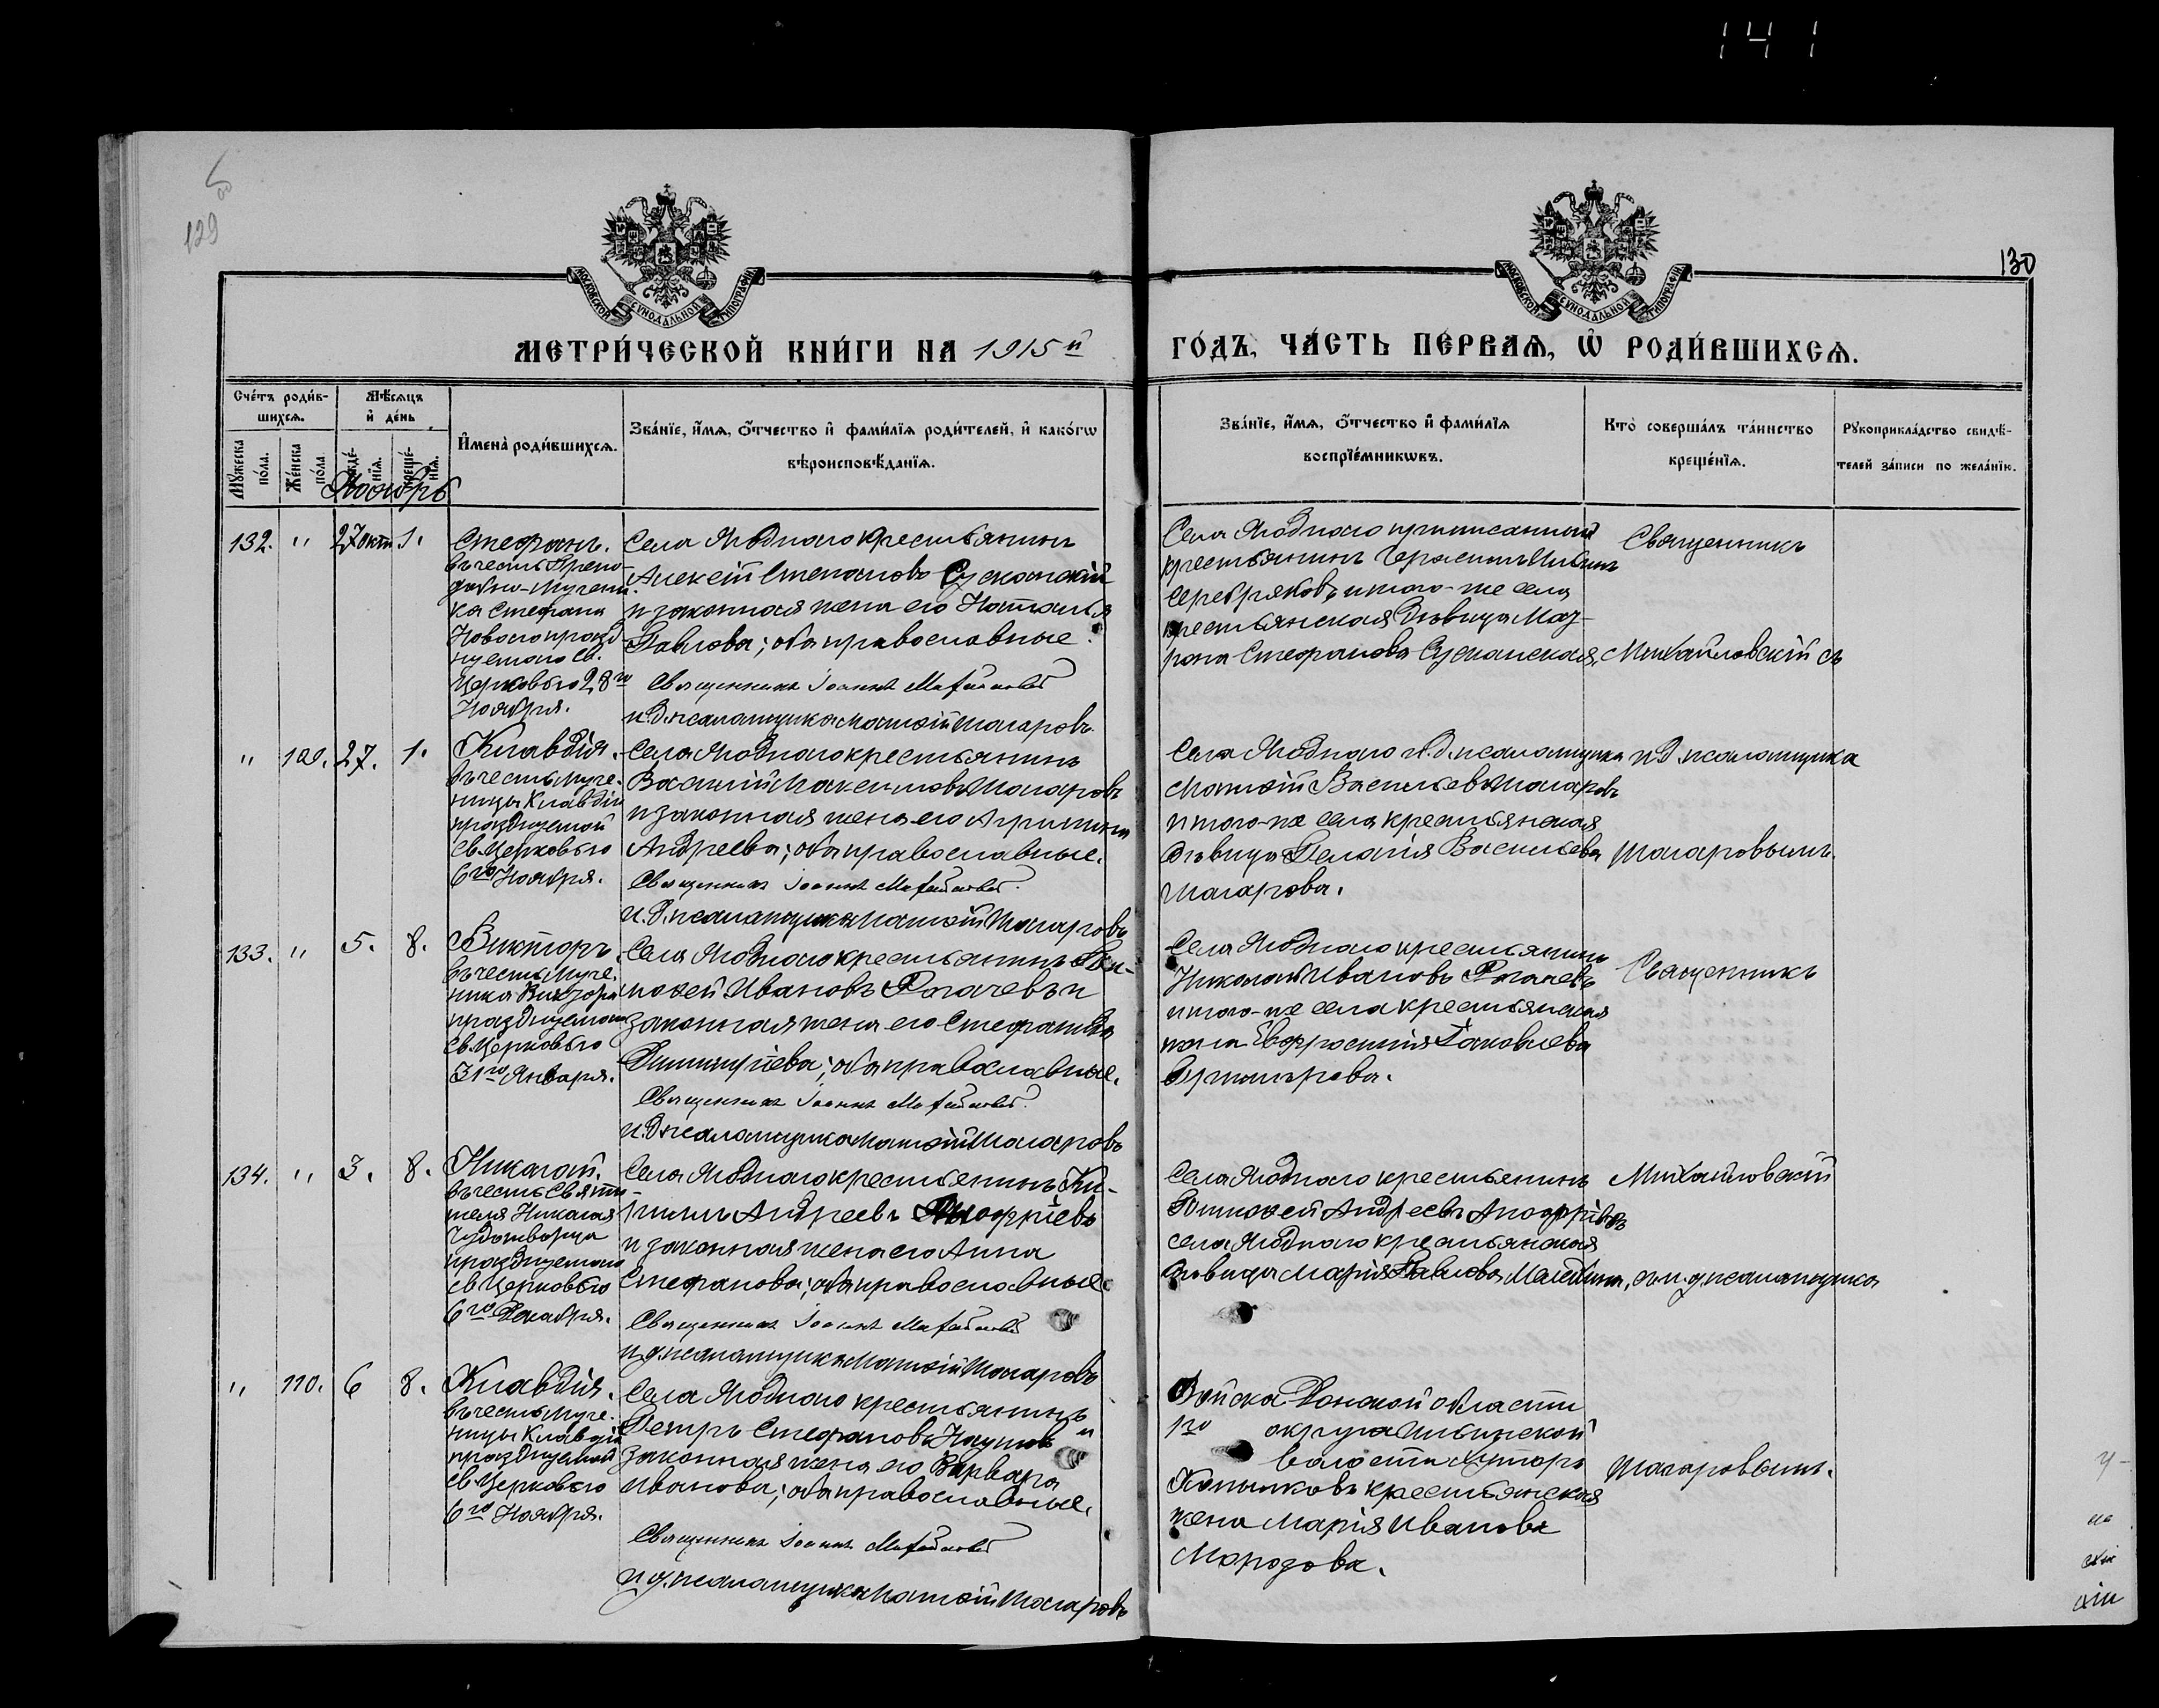 141
129
130
МОСКОВСКОЙ СУНОДАЛЬНОЙ ТИПОГРАФІИ
МОСКОВСКОЙ СУНОДАЛЬНОЙ ТИПОГРАФІИ
МЕТРИ́ЧЕСКОЙ КНИ́ГИ НА 1915й ГО́ДЪ, ЧА́СТЬ ПЕ́РВАѦ, Ѡ҆ РОДИ́ВШИХСѦ.
Сче́тъ роди́в-
шихсѧ.
Мѣ́сѧцъ
и҆ де́нь
Мꙋ́жеска по́ла.
Же́нска по́ла
рожде́-нїѧ.
креще́-нїѧ.
И҆мена̀ роди́вшихсѧ.
Зва́нїе, и҆́мѧ, ѻ҆́тчество и҆ фами́лїѧ роди́телей, и҆ како́гѡ
вѣроисповѣ́данїѧ.
Зва́нїе, и҆́мѧ, ѻ҆́тчество и҆ фами́лїѧ
воспрїе́мникѡвъ.
Кто̀ соверша́лъ та́инство
креще́нїѧ.
Рꙋкоприкла́дство свидѣ́-
телей за́писи по жела́нїю.
Ноябрь
132. " 27 окт 1.
Стефанъ.
въ честь Препо-
добно-мучени-
ка Стефана
Новаго празд-
нуемаго Св.
Церковью 28го
Ноября.
Села Ягоднаго крестьянинъ
Алексій Степановъ Сусканскій
и законная жена его Наталья
Павлова; оба православные.
Священникъ Іоаннъ Михайловскій
и.д. псаломщика Матвій Шагаровъ.
Села Ягоднаго приписанный
крестьянинъ Герасимъ Ильинъ
Серебряковъ, и того-же села
крестьянская дѣвица Мат-
рона Стефанова Сусканская,
Священникъ
Михайловскій съ
" 109. 27. 1.
Клавдія.
въ честь муче-
ницы Клавдіи
празднуемой
Св. Церковью
6го Ноября.
Села Ягоднаго крестьянинъ
Василій Максимовъ Шагаровъ
и законная жена его Агрипина
Андреева; оба православные.
Священникъ Іоаннъ Михайловскій.
и.д. псаломщика Матвій Шагаровъ
Села Ягоднаго и.д. псаломщика
Матвій Васильевъ Шагаровъ
и того-же села крестьянская
дѣвица Пелагія Васильева
Шагарова.
и.д. псаломщика
Шагаровымъ.
133. " 5. 8.
Викторъ.
въ честь муче-
ника Виктора
празднуемаго
Св. Церковью
31го Января.
Села Ягоднаго крестьянинъ
Ивановъ Рогачевъ и
законная жена его Стефанида
Димитріева; оба православные.
Священникъ Іоаннъ Михайловскій.
и.д. псаломщика Матвій Шагаровъ
Села Ягоднаго крестьянинъ
Николай Ивановъ Рогачевъ
и того-же села крестьянская
жена Евфросинія Іаковлева
Священникъ
134. " 3. 8.
Николай.
въ честь Святи-
теля Николая
Чудотворца
празднуемаго
св. Церковью
6го Декабря.
Села Ягоднаго крестьянинъ Ки-
риллъ Андреевъ Анофріевъ
и законная жена его Анна
Стефанова; оба православные.
Священникъ Іоаннъ Михайловскій
и.д. псаломщика Матвій Шагаровъ
Села Ягоднаго крестьянинъ
Тимофей Андреевъ Анофріевъ
села Ягоднаго крестьянская
дѣвица Марія Павлова
Михайловскій
съ и.д. псаломщика
" 110. 6 8.
Клавдія.
въ честь муче-
ницы Клавдіи
празднуемой
св. Церковью
6го Ноября.
Села Ягоднаго крестьянинъ
Петръ Стефановъ Наумовъ и
законная жена его Варвара
Иванова; оба православные.
Священникъ Іоаннъ Михайловскій
и.д. псаломщика Матвій Шагаровъ
Войска Донской области
1го округа Ильинской
волости хуторъ
крестьянская
жена Марія Иванова
Морозова.
Шагаровымъ.